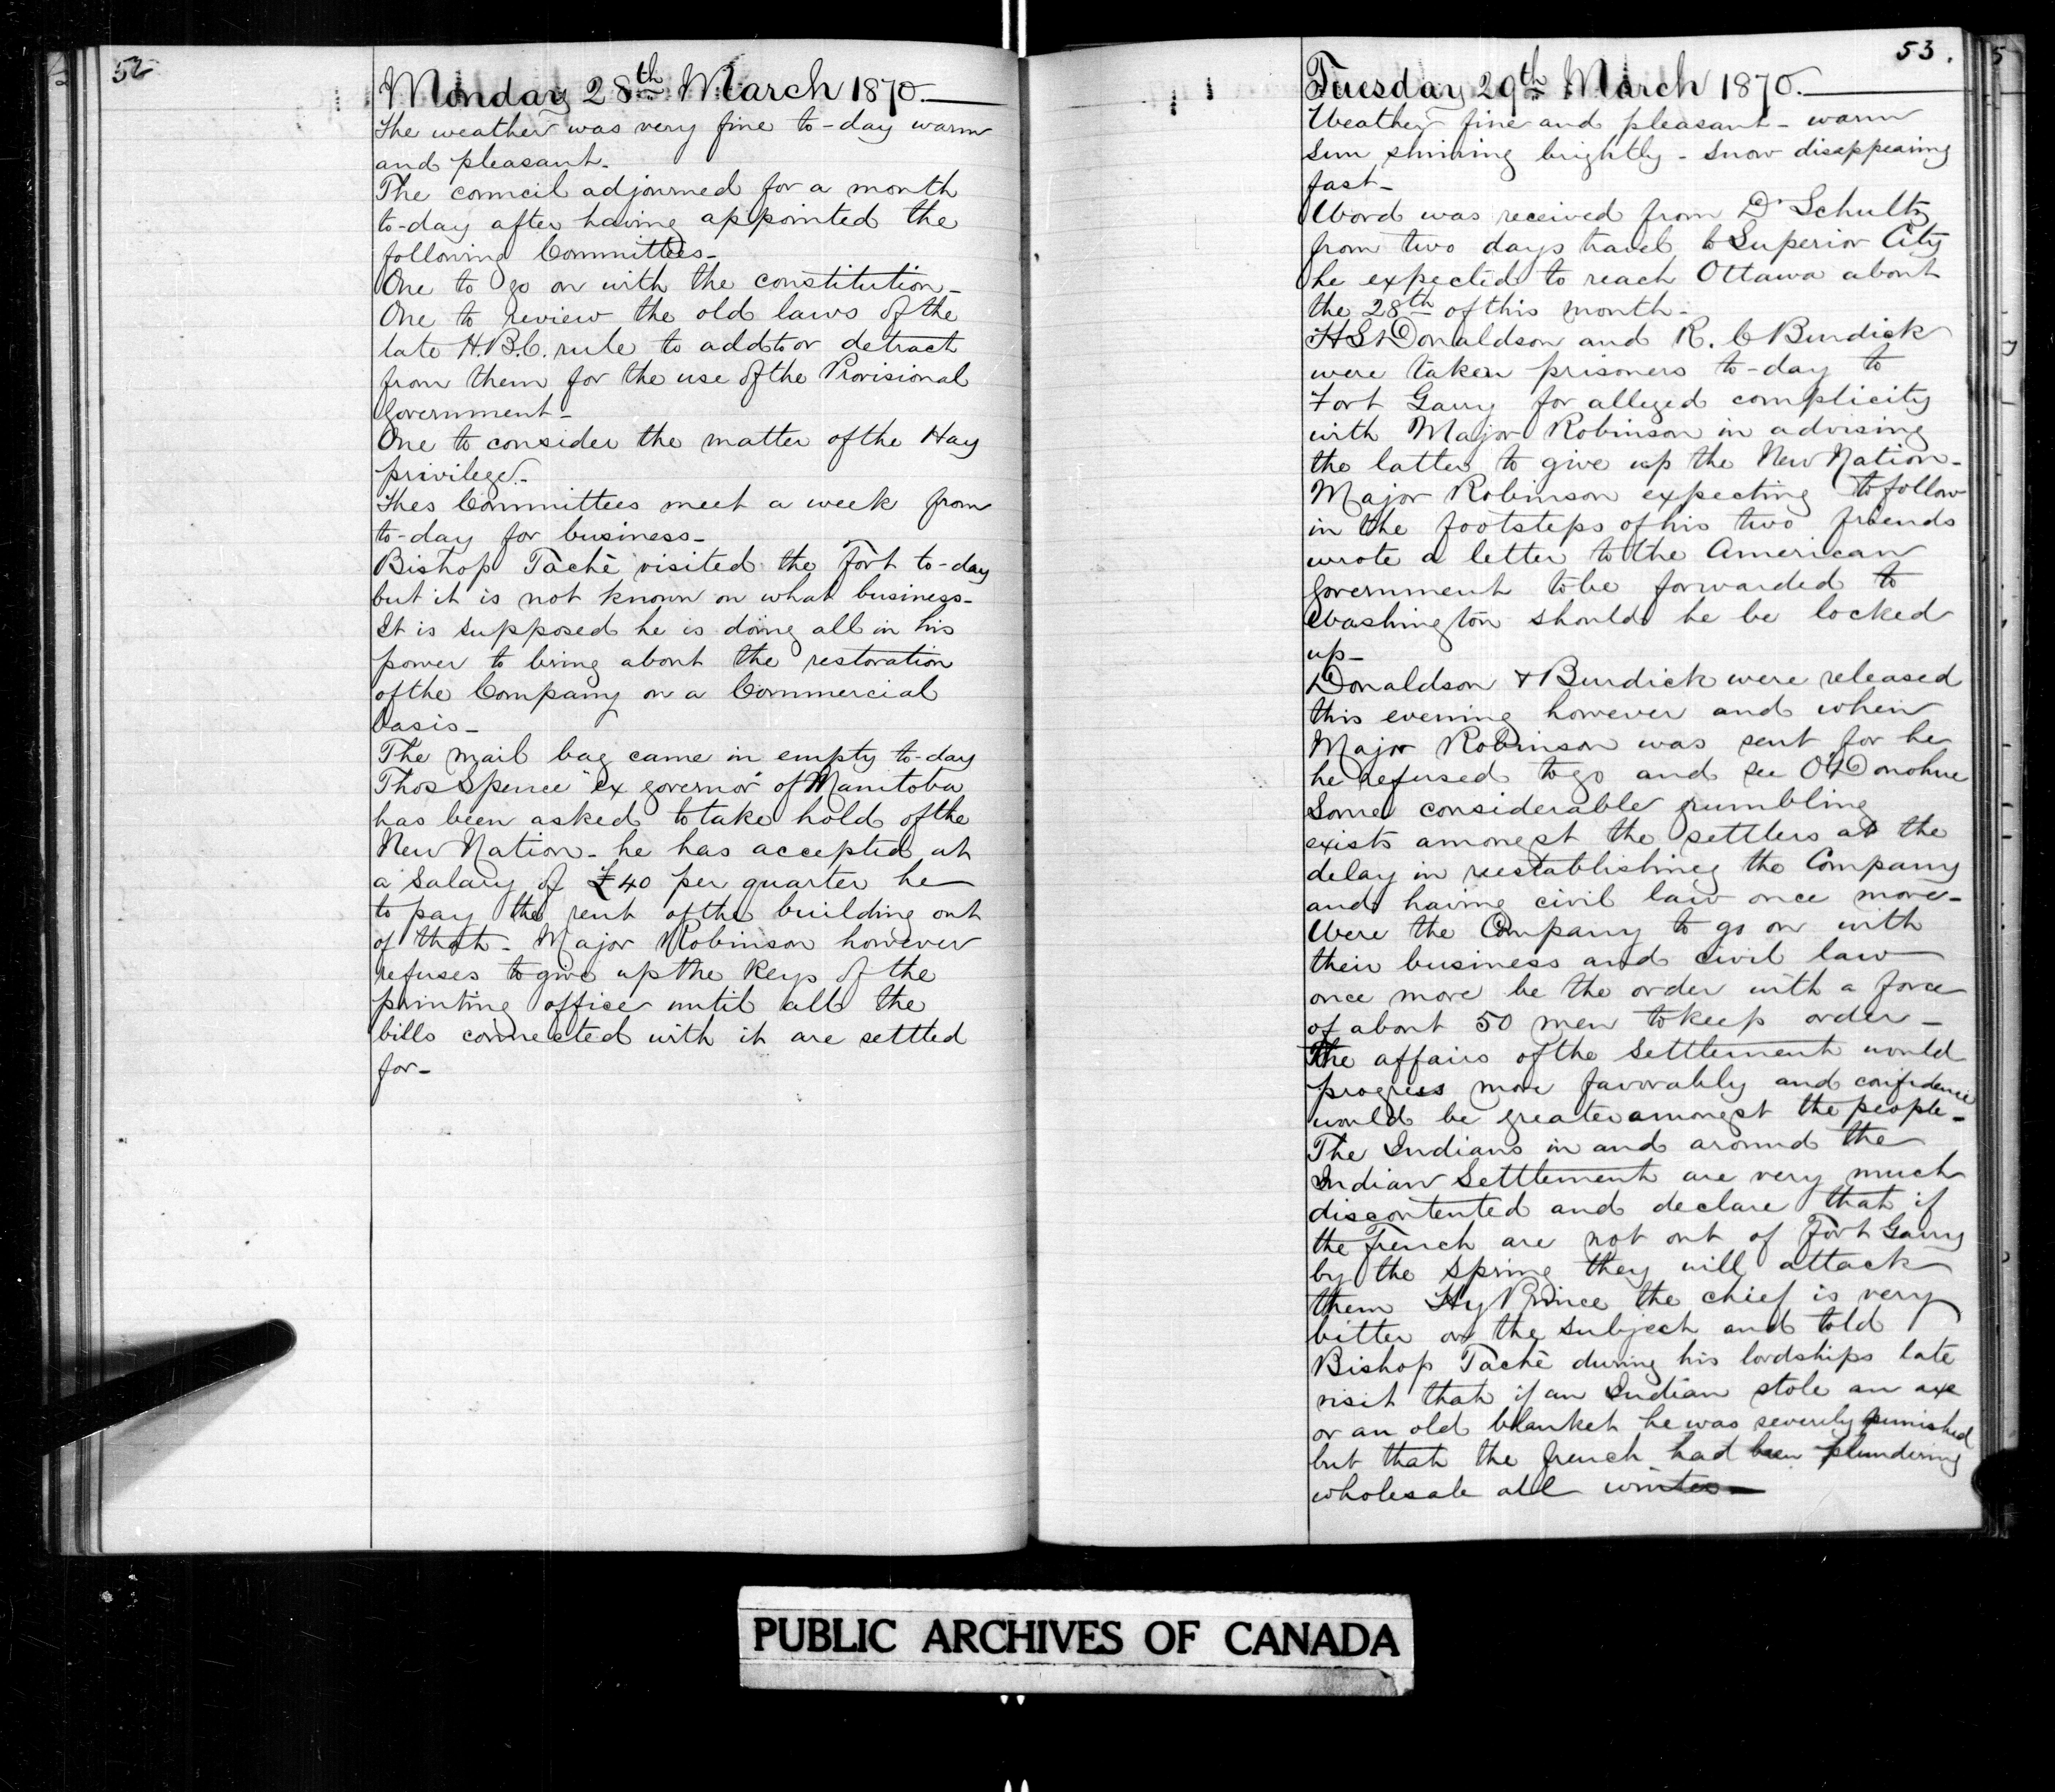 52
Monday 28th March 1870.
The weather was very fine to-day warm
and pleasant.
The council adjourned for a month
to-day after having appointed the
following Committees-
One to go on with the constitution-
One to review the old laws of the
late H.B.C. rule to add to or detract
from them for the use of the Provisional
Government-
One to consider the matter of the Hay
privilege.-
Thes Committees meet a week from
to-day for business-
Bishop Tachè visited the Fort to-day
but it is not known on what business-
It is supposed he is doing all in his
power to bring about the restoration
of the Company on a Commercial
basis-
The mail bag came in empty to-day
Thos Spence "ex governor" of Manitoba
has been asked to take hold of the
New Nation- he has accepted at
a salary of £40 per quarter he
to pay the rent of the building out
of that- Major Robinson however
refuses to give up the Keys of the
printing office until all the
bills connected with it are settled
for-
53.
Tuesday 29th March 1870.
Weather fine and pleasant- warm
sun shining brightly- snow disappearing
fast-
Word was received from Dr Schultz
from two days travel to Superior City
he expected to reach Ottawa about
the 28th of this month-
H S Donaldson and R. C Burdick
were taken prisoners to-day to
Fort Garry for alleged complicity
with Major Robinson in advising
the latter to give up the New Nation-
Major Robinson expecting to follow
in the footsteps of his two friends
wrote a letter to the American
Government to be forwarded to
Washington should he be locked
up-
Donaldson & Burdick were released
this evening however and when
Major Robinson was sent for he
he refused to go and see O'Donohue
Some considerable grumbling
exists amongst the settlers at the
delay in reestablishing the Company
and having civil law once more-
Were the Company to go on with
their business and civil law
once more be the order with a force
of about 50 men to keep order-
The affairs of the Settlement would
progress more favorably and confidence
would be greater amongst the people-
The Indians in and around the
Indian Settlement are very much
discontented and declare that if
the French are not out of Fort Garry
by the Spring they will attack
them Hy Prince the chief is very
bitter on the subject and told
Bishop Tachè during his lordships late
visit that if an Indian stole an axe
or an old blanket he was severely punished
but that the french had been plundering
wholesale all winter-
PUBLIC ARCHIVES OF CANADA